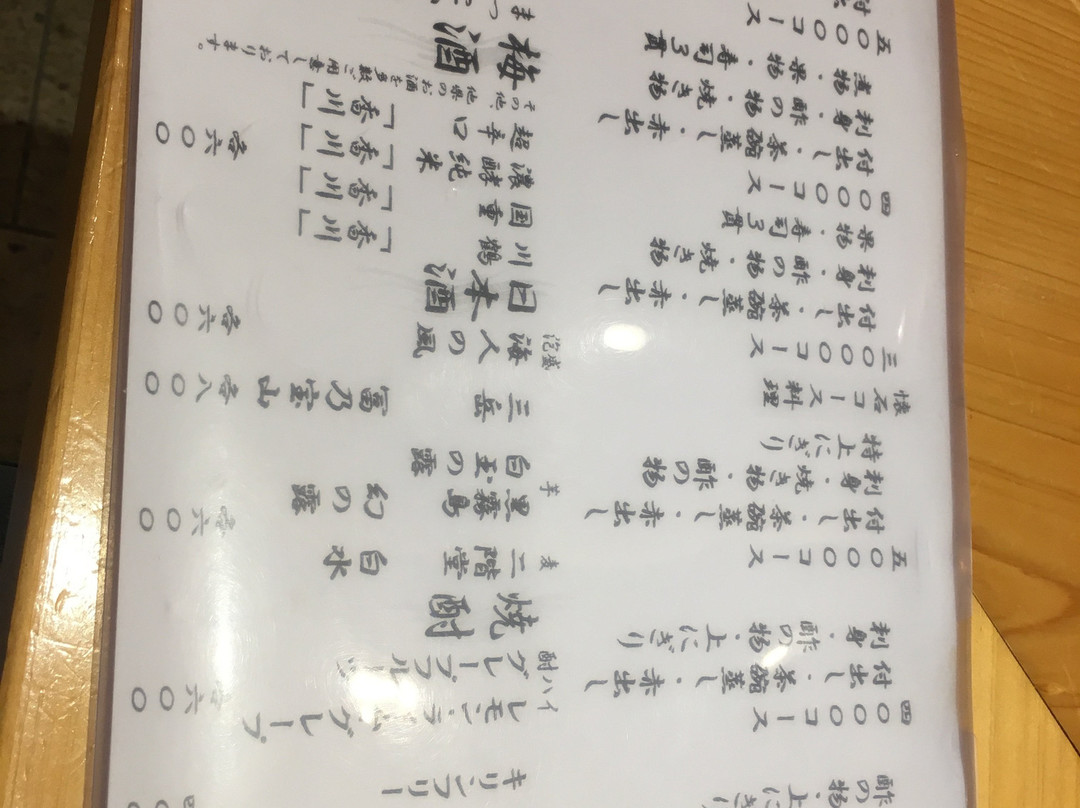 酢の物・上にぎり
四〇〇〇コース
付出し・茶碗蒸し・赤出し
刺身・酢の物・上にぎり
五〇〇〇コース
付出し・茶碗蒸し・赤出し
刺身・焼き物・酢の物
特上にぎり
懐石コース料理
三〇〇〇コース
付出し・茶碗蒸し・赤出し
刺身・酢の物・焼き物
果物・寿司3貫
四〇〇〇コース
付出し・茶碗蒸し・赤出し
刺身・酢の物・焼き物
煮物・果物・寿司3貫
五〇〇〇コース
キリンフリー
酎ハイ レモン・ライム・グレープ 各六〇〇
グレープフルーツ
焼酎
麦 二階堂 白水
芋 黒霧島 幻の露 各六〇〇
白玉の露
三岳 富乃宝山 各八〇〇
泡盛 海人の風 各六〇〇
日本酒
川鶴 「香川」
国重 「香川」
濃酵純米 「香川」
超辛口 「香川」 各六〇〇
その他、他県のお酒を多数ご用意しております。
梅酒